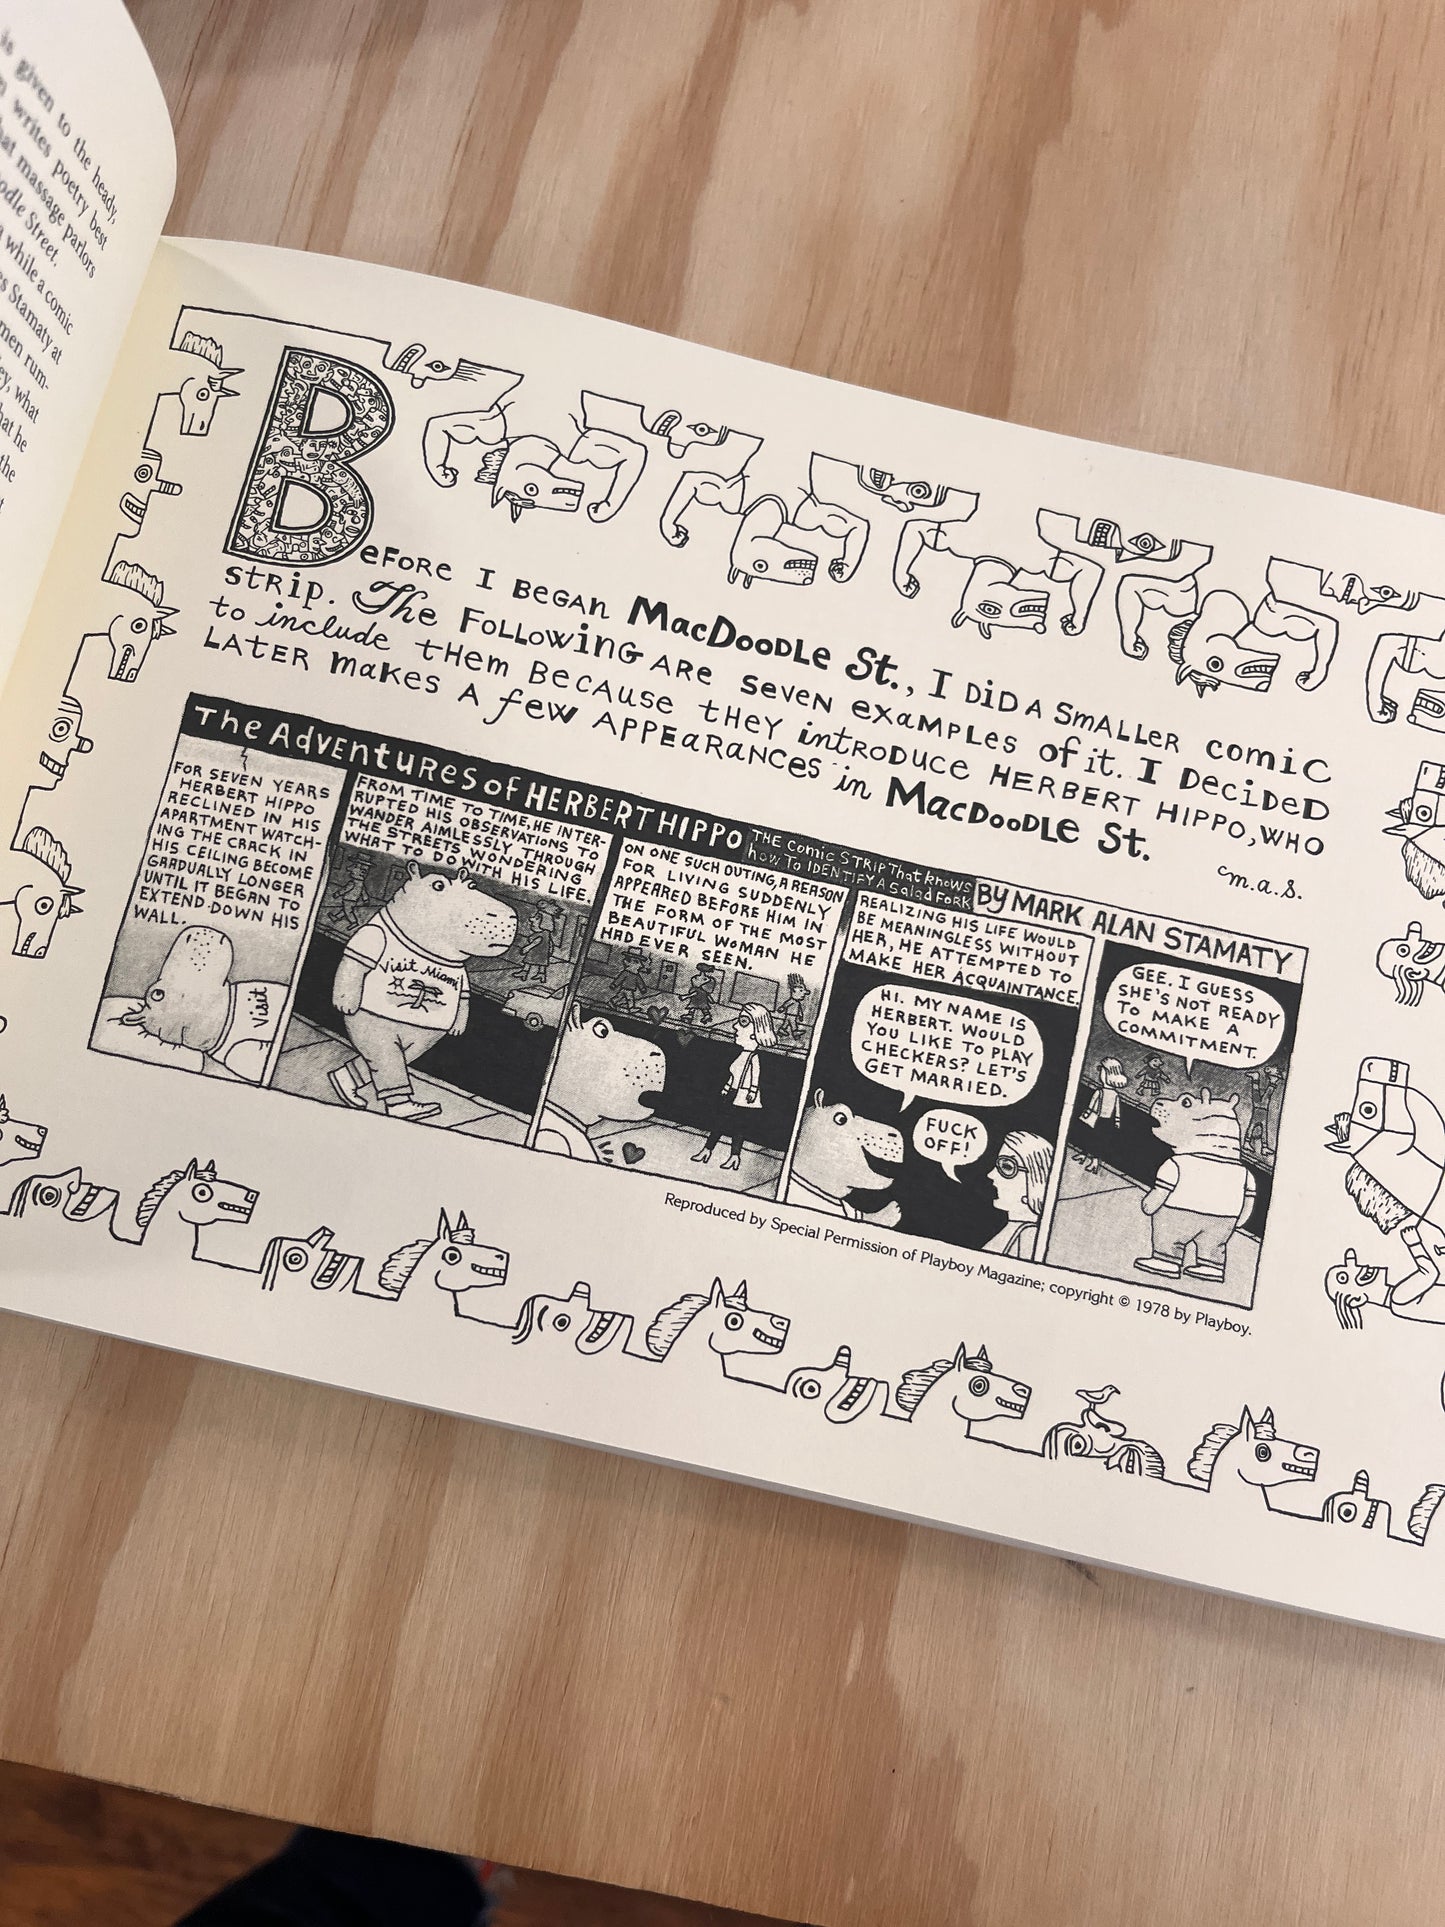 is given to the heady,
writes poetry best
that massage parlors
Doodle Street.
while a comic
Stamaty at
men rum-
what
that he
the
BEFORE I BEGAN MacDOODLE St., I DID A SMALLER COMIC
STRIP. The FOLLOWING ARE SEVEN EXAMPLES of it. I DECIDED
to include them BECAUSE they introduce HERBERT HIPPO, WHO
LATER makes A few APPEARANCES in MacDOODLE St.
m.a.s.
The ADVENTURES of HERBERT HIPPO
THE COMIC STRIP THAT KNOWS
HOW TO IDENTIFY A SALAD FORK
BY MARK ALAN STAMATY
FOR SEVEN YEARS
HERBERT HIPPO
RECLINED IN HIS
APARTMENT WATCH-
ING THE CRACK IN
HIS CEILING BECOME
GRADUALLY LONGER
UNTIL IT BEGAN TO
EXTEND DOWN HIS
WALL.
Visit
FROM TIME TO TIME, HE INTER-
RUPTED HIS OBSERVATIONS TO
WANDER AIMLESSLY THROUGH
THE STREETS WONDERING
WHAT TO DO WITH HIS LIFE.
Visit Miami
ON ONE SUCH OUTING, A REASON
FOR LIVING SUDDENLY
APPEARED BEFORE HIM IN
THE FORM OF THE MOST
BEAUTIFUL WOMAN HE
HAD EVER SEEN.
REALIZING HIS LIFE WOULD
BE MEANINGLESS WITHOUT
HER, HE ATTEMPTED TO
MAKE HER ACQUAINTANCE.
HI. MY NAME IS
HERBERT. WOULD
YOU LIKE TO PLAY
CHECKERS? LET'S
GET MARRIED.
FUCK
OFF!
GEE. I GUESS
SHE'S NOT READY
TO MAKE A
COMMITMENT.
Reproduced by Special Permission of Playboy Magazine; copyright © 1978 by Playboy.